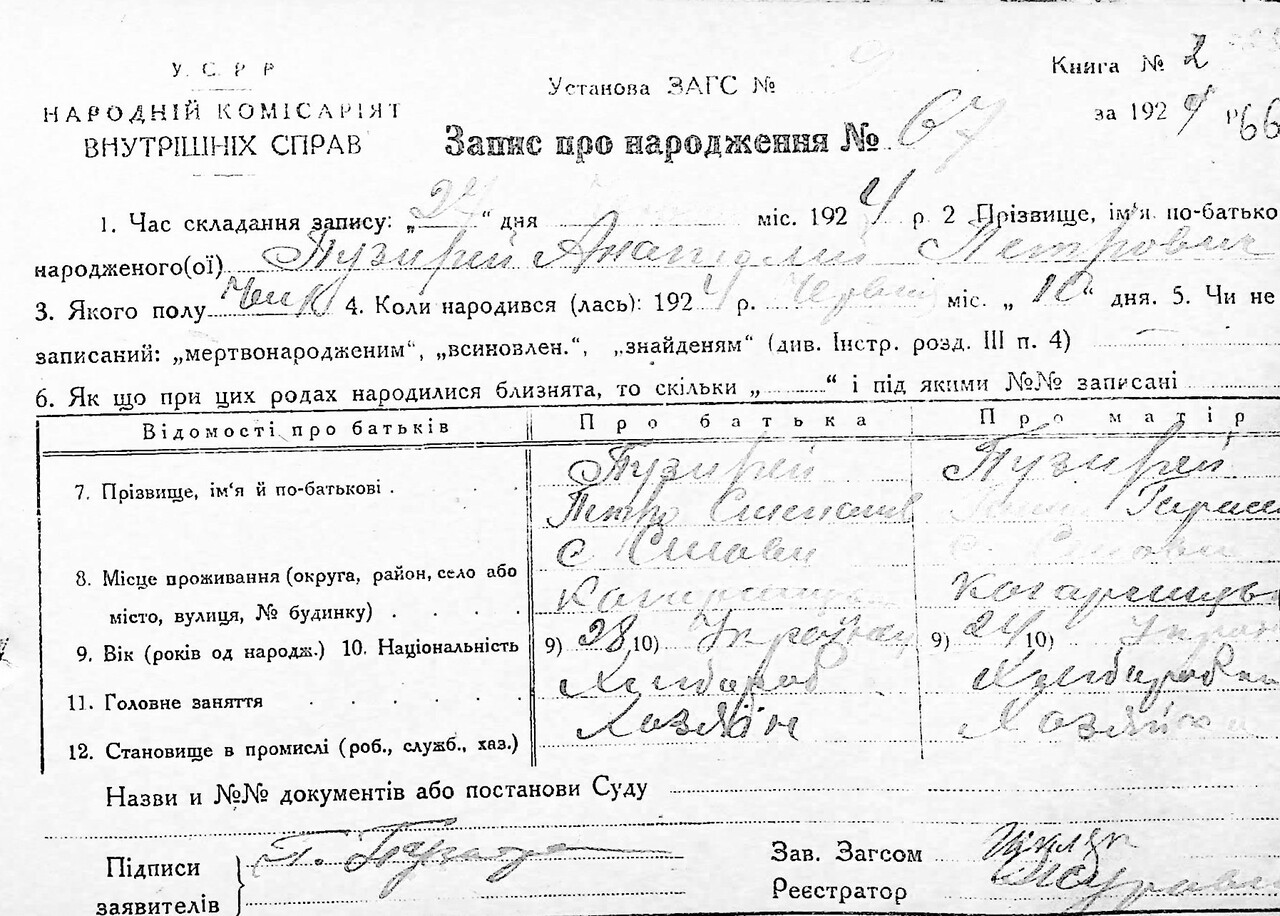 У. С. Р. Р
НАРОДНІЙ КОМІСАРІЯТ
ВНУТРІШНІХ СПРАВ
Установа ЗАГС №
Книга № 2
за 1924 р 66
Запис про народження № 67
1. Час складання запису: „24“ дня міс. 1924 р. 2 Прізвище, ім'я по-батькові
народженого(ої) Пузирей Анатолій Петрович
3. Якого полу Чолк 4. Коли народився (лась): 1924 р. Червня міс. „10“ дня. 5. Чи не
записаний: „мертвонародженим“, „всиновлен.“, „знайденям“ (див. Інстр. розд. III п. 4)
6. Як що при цих родах народилися близнята, то скільки „ “ і під якими №№ записані
Відомості про батьків Про батька Про матір
7. Прізвище, ім'я й по-батькові . . . Пузирей Пузирей
Петро Степанів Гарасим
8. Місце проживання (округа, район, село або
місто, вулиця, № будинку) . . . .
9. Вік (років од народж.) 10. Національність 9) 28 10) Україн 9) 24 10) Україн
11. Головне заняття . . . . . Хлібороб Хлібороб
12. Становище в промислі (роб., служб., хаз.) Хазяїн Хазяйка
Назви и №№ документів або постанови Суду
Підписи
заявителів
Зав. Загсом
Реєстратор